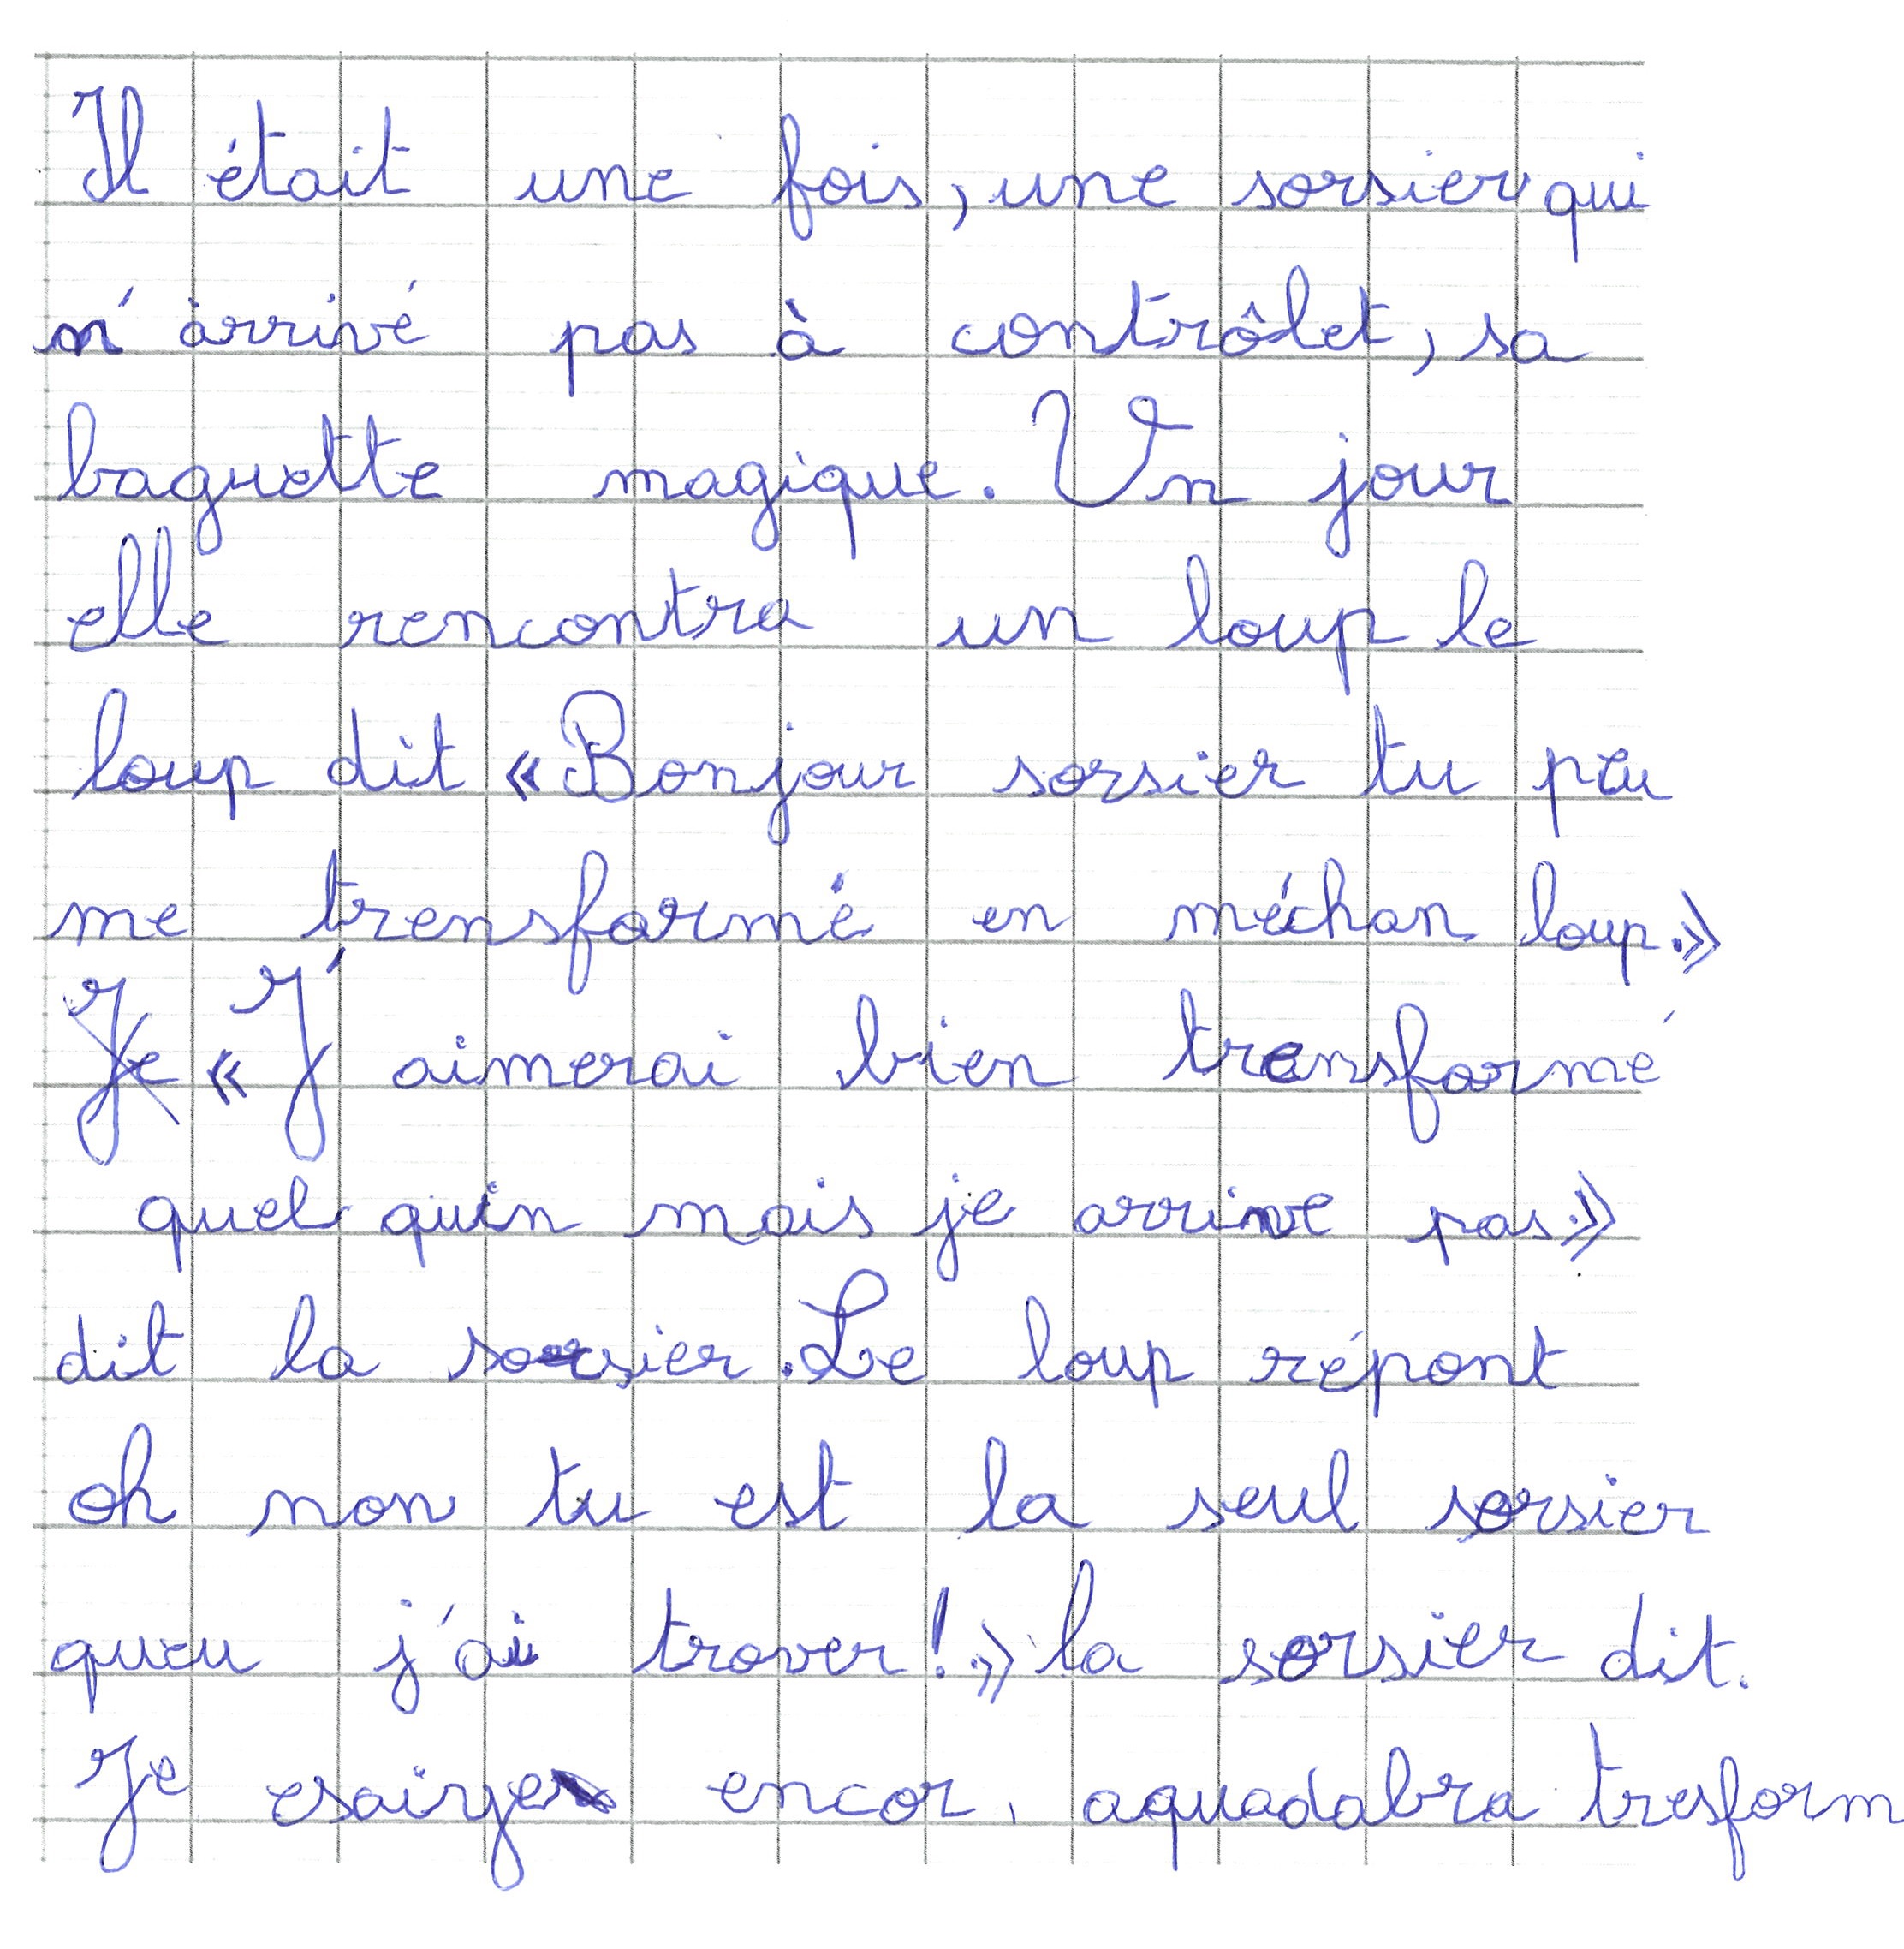 Il était une fois, une sorsier qui
n'arrivé pas à contrôlet, sa
baguette magique. Un jour
elle rencontra un loup le
loup dit «Bonjour sorsier tu peu
me trensformé en méchan loup.»
Je «J'aimerai bien transformé
quel quin mais je arrive pas.»
dit la sorsier. Le loup répont
oh non tu est la seul sorsier
queu j'ai trover!» la sorsier dit.
Je esaiye encor, aquadabra tresform